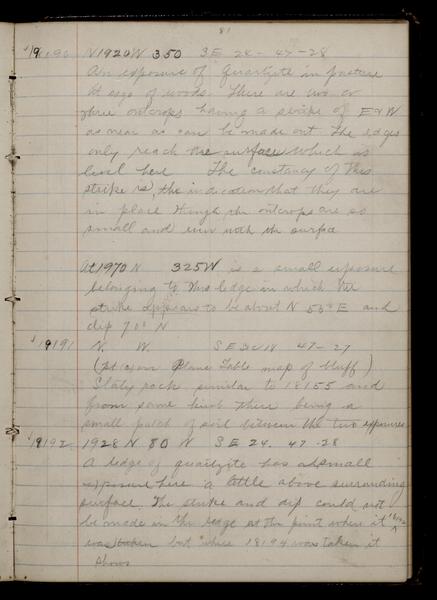 81
19190 N1920W 350 SE 24-47-28
An exposure of Quartzite in pasture
at edge of woods. There are two or
three outcrops having a strike of E&W
as near as can be made out. The ledges
only reach the surface which is
level here The constancy of this
strike is the indication that they are
in place though the outcrops are so
small and even with the surface
At 1970 N 325W is a small exposure
belonging to this ledge in which the
strike appears to be about N 55° E and
dip 70° N
19191 N. W. SE 47-27
(on Plane Table map of bluff)
Slaty rock similar to 18155 and
from same there being a
small patch of soil between the two exposures
19192 1928 N 80 W SE 24. 47-28
A ledge of quartzite has a small
exposure here a little above surrounding
surface. The strike and dip could not
be made in the ledge at the point where it
was taken but where 18194 was taken it
shows